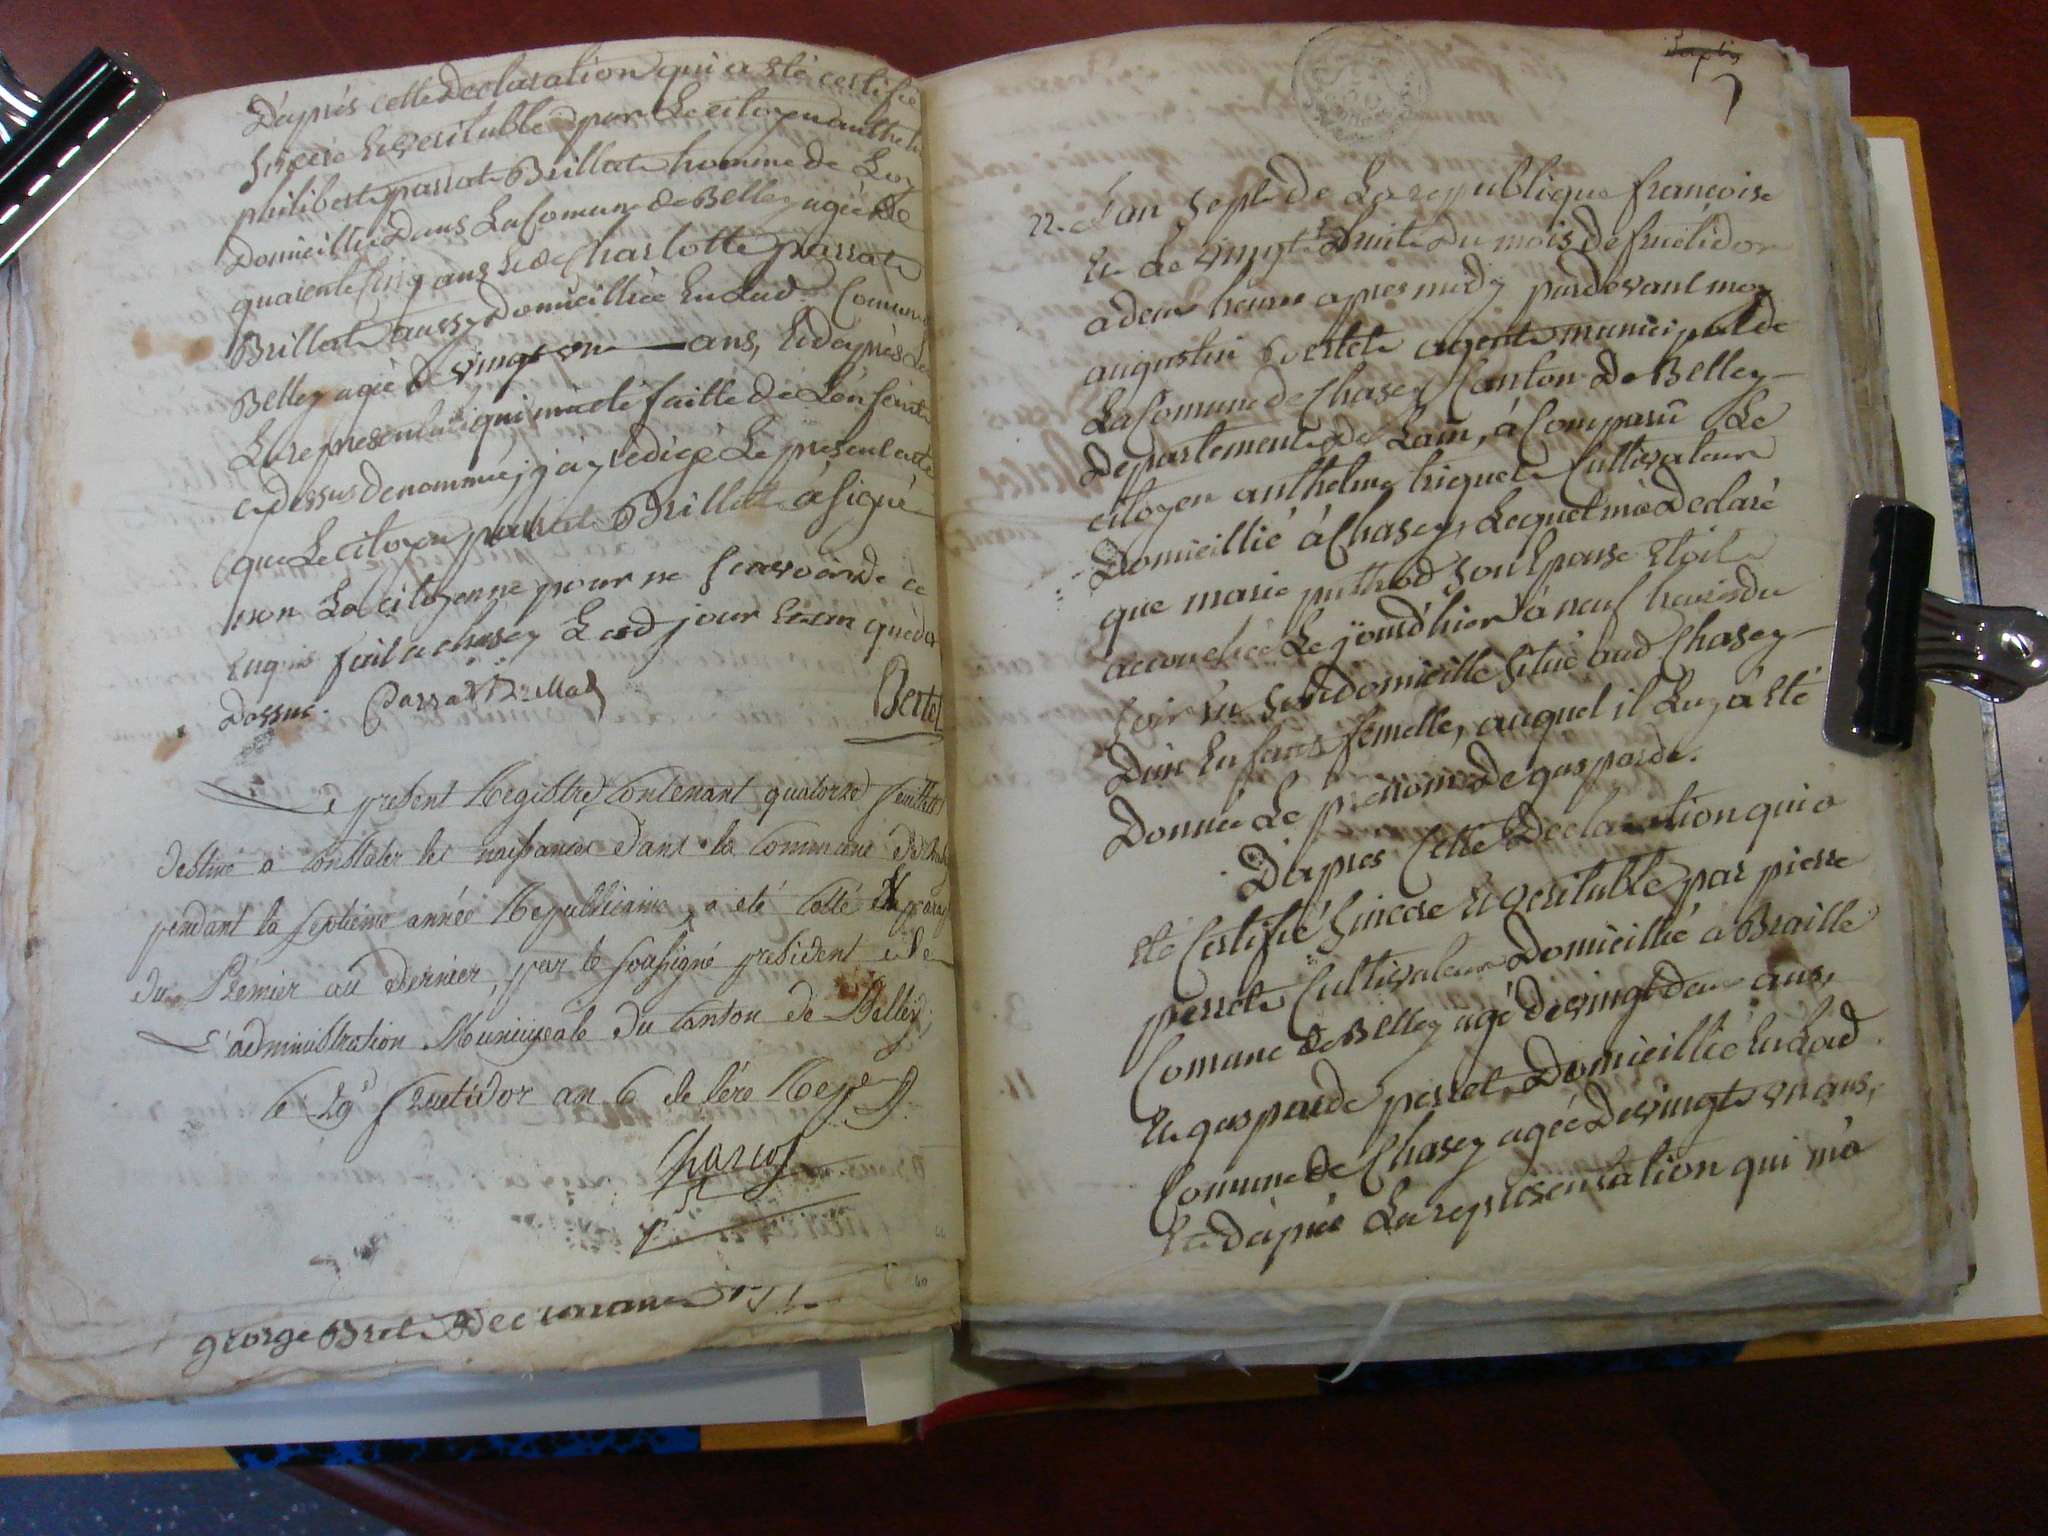 Daprés cette Declaration qui a eté certifié
sincere Et veritable par Le citoyen anthelm
philibert parrat Brillat homme de Loy
Domicillié Dans La Comune de Belley agé De
quarente cinq ans Et de Charlotte parrat
Brillat aussy Domicillièe En Lad. Comune
Belley agée De vingt un ans, Et daprès
La representation qui m'a eté faitte de L'enfent
cy dessus denommé, j'ay redigé Le present acte
que Le citoyen parrat Brillat a signé
non La citoyenne pour ne sçavoir de ce
Enquis fait a chasey Lesd jour Et an que d
Dessus. Parrat Brillat
Bertet
Le present Registre Contenant quatorze feuillets
destiné a Constater les naissances dans la Commune de Chasey
pendant la septieme année Republicaine, a eté Cotté Et paraphé
du Premier au dernier, par le sousigné president de
L'administration Municipale du Canton de Belley,
le 29 fructidor an 6 de l'ére Repe
Charcot
george Bret
Sept
7
22. L'an sept de La republique francoise
Et Le vingt huit Du mois De fructidor
a deux heures apres midy pardevant moy
augustin Bertet agent municipal de
La Comune de Chasey Canton De Belley
Departement de Lain, à Comparû Le
citoyen anthelme huguet Cultivateur
Domicillié à Chasey, Lequel m'a Declaré
que marie puthod son Epouse Etoit
accouchée Le jourd'hier à neuf heures du
soir En son domicille situé aud Chasey
Dun Enfant femelle, auquel il Luy à eté
Donné Le prenom De gasparde.
Daprés Cette Declaration qui a
eté Certifié sincere Et veritable par pierre
perret Cultivateur Domicillié a Braille
Comune de Belley agé De vingt deux ans,
Et gasparde perret Domicillié En Lad
Comune de Chasey agée De vingt un ans,
Et Daprés La representation qui m'a